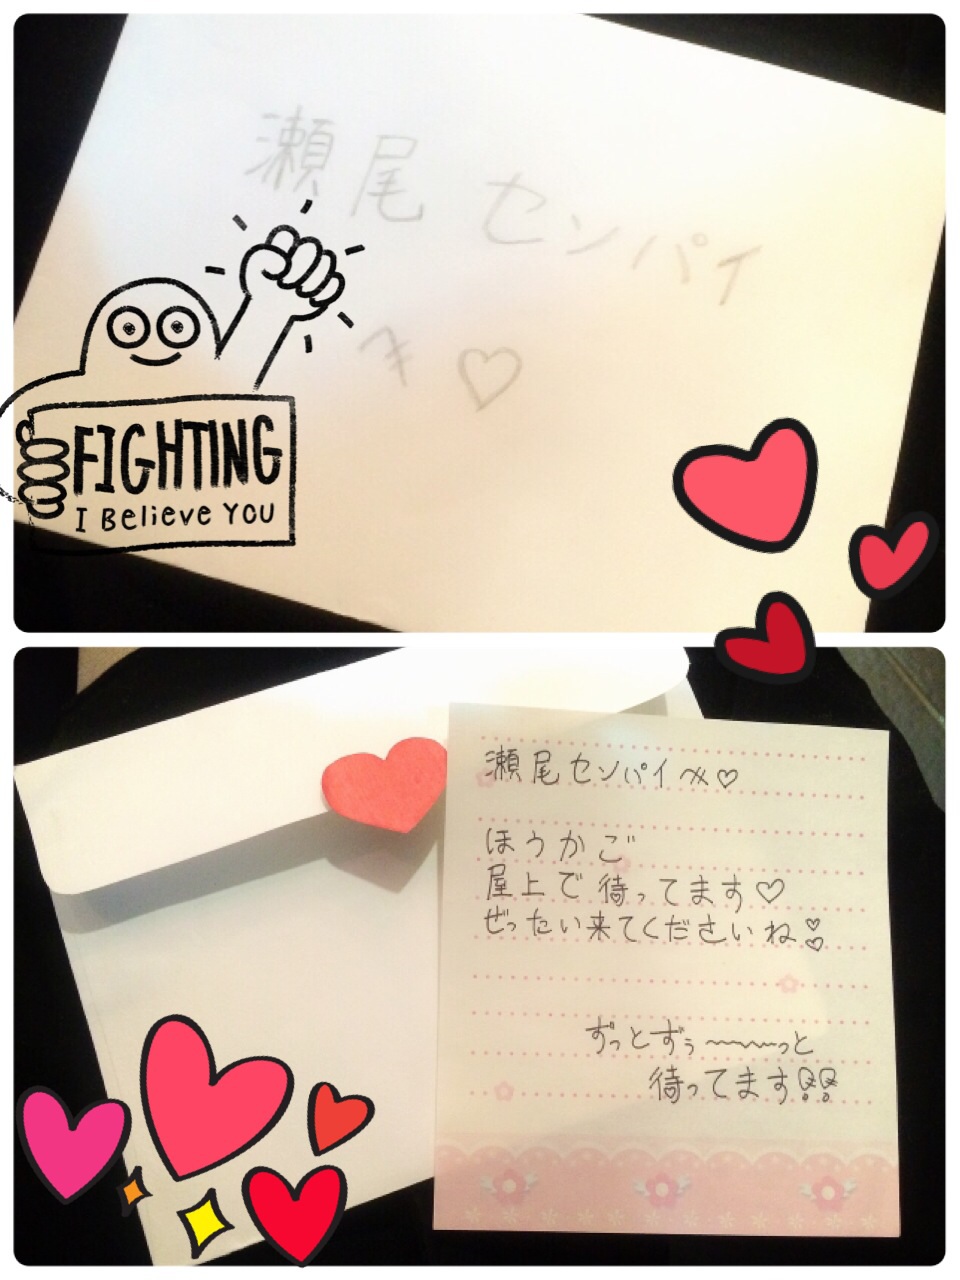 瀬尾センパイ
へ♡
FIGHTING
I Believe YOU
瀬尾センパイへ♡
ほうかご
屋上で待ってます♡
ぜったい来てくださいね
ずっとずぅ〜〜〜っと
待ってます!!